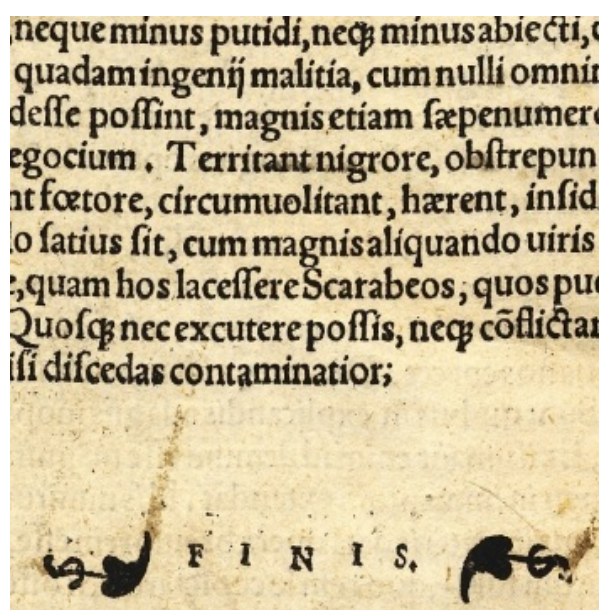 ,neque minus putidi,neq́ꝫ minus abiecti,
quadam ingenij malitia, cum nulli omnin
desse possint, magnis etiam sæpenumero
egocium. Territant nigrore, obstrepun
nt fœtore, circumuolitant, hærent, insid
lo satius sit, cum magnis aliquando uiris
e,quam hos lacessere Scarabeos, quos pud
Quosqꝫ nec excutere possis, neqꝫ cõflictar
isi discedas contaminatior;
F I N I S.